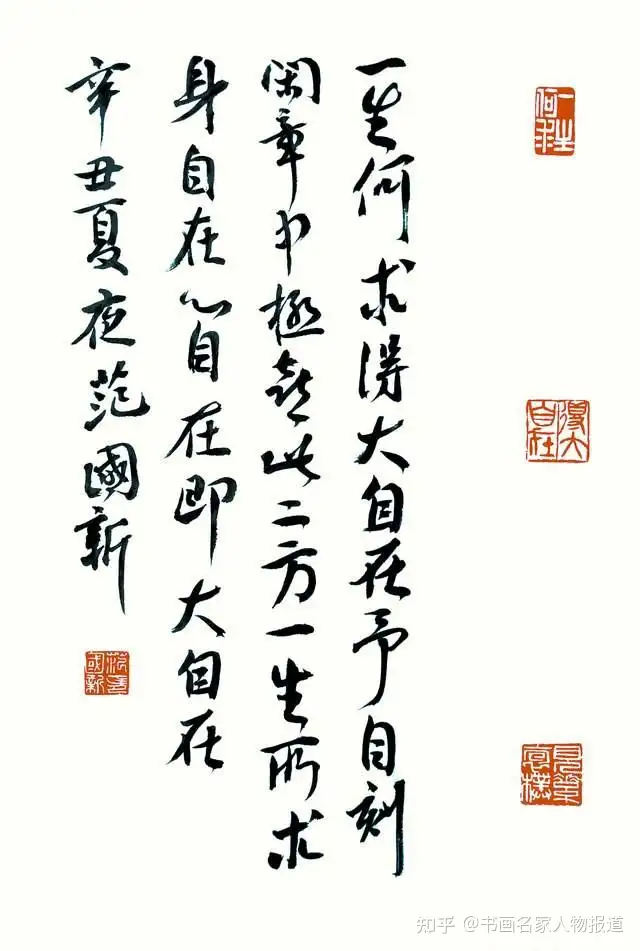 一生何求得大自在予自刻
闲章中极喜此二方一生所求
身自在心自在即大自在
辛丑夏夜范國新
一生何求
得大自在
知乎 @书画名家人物报道